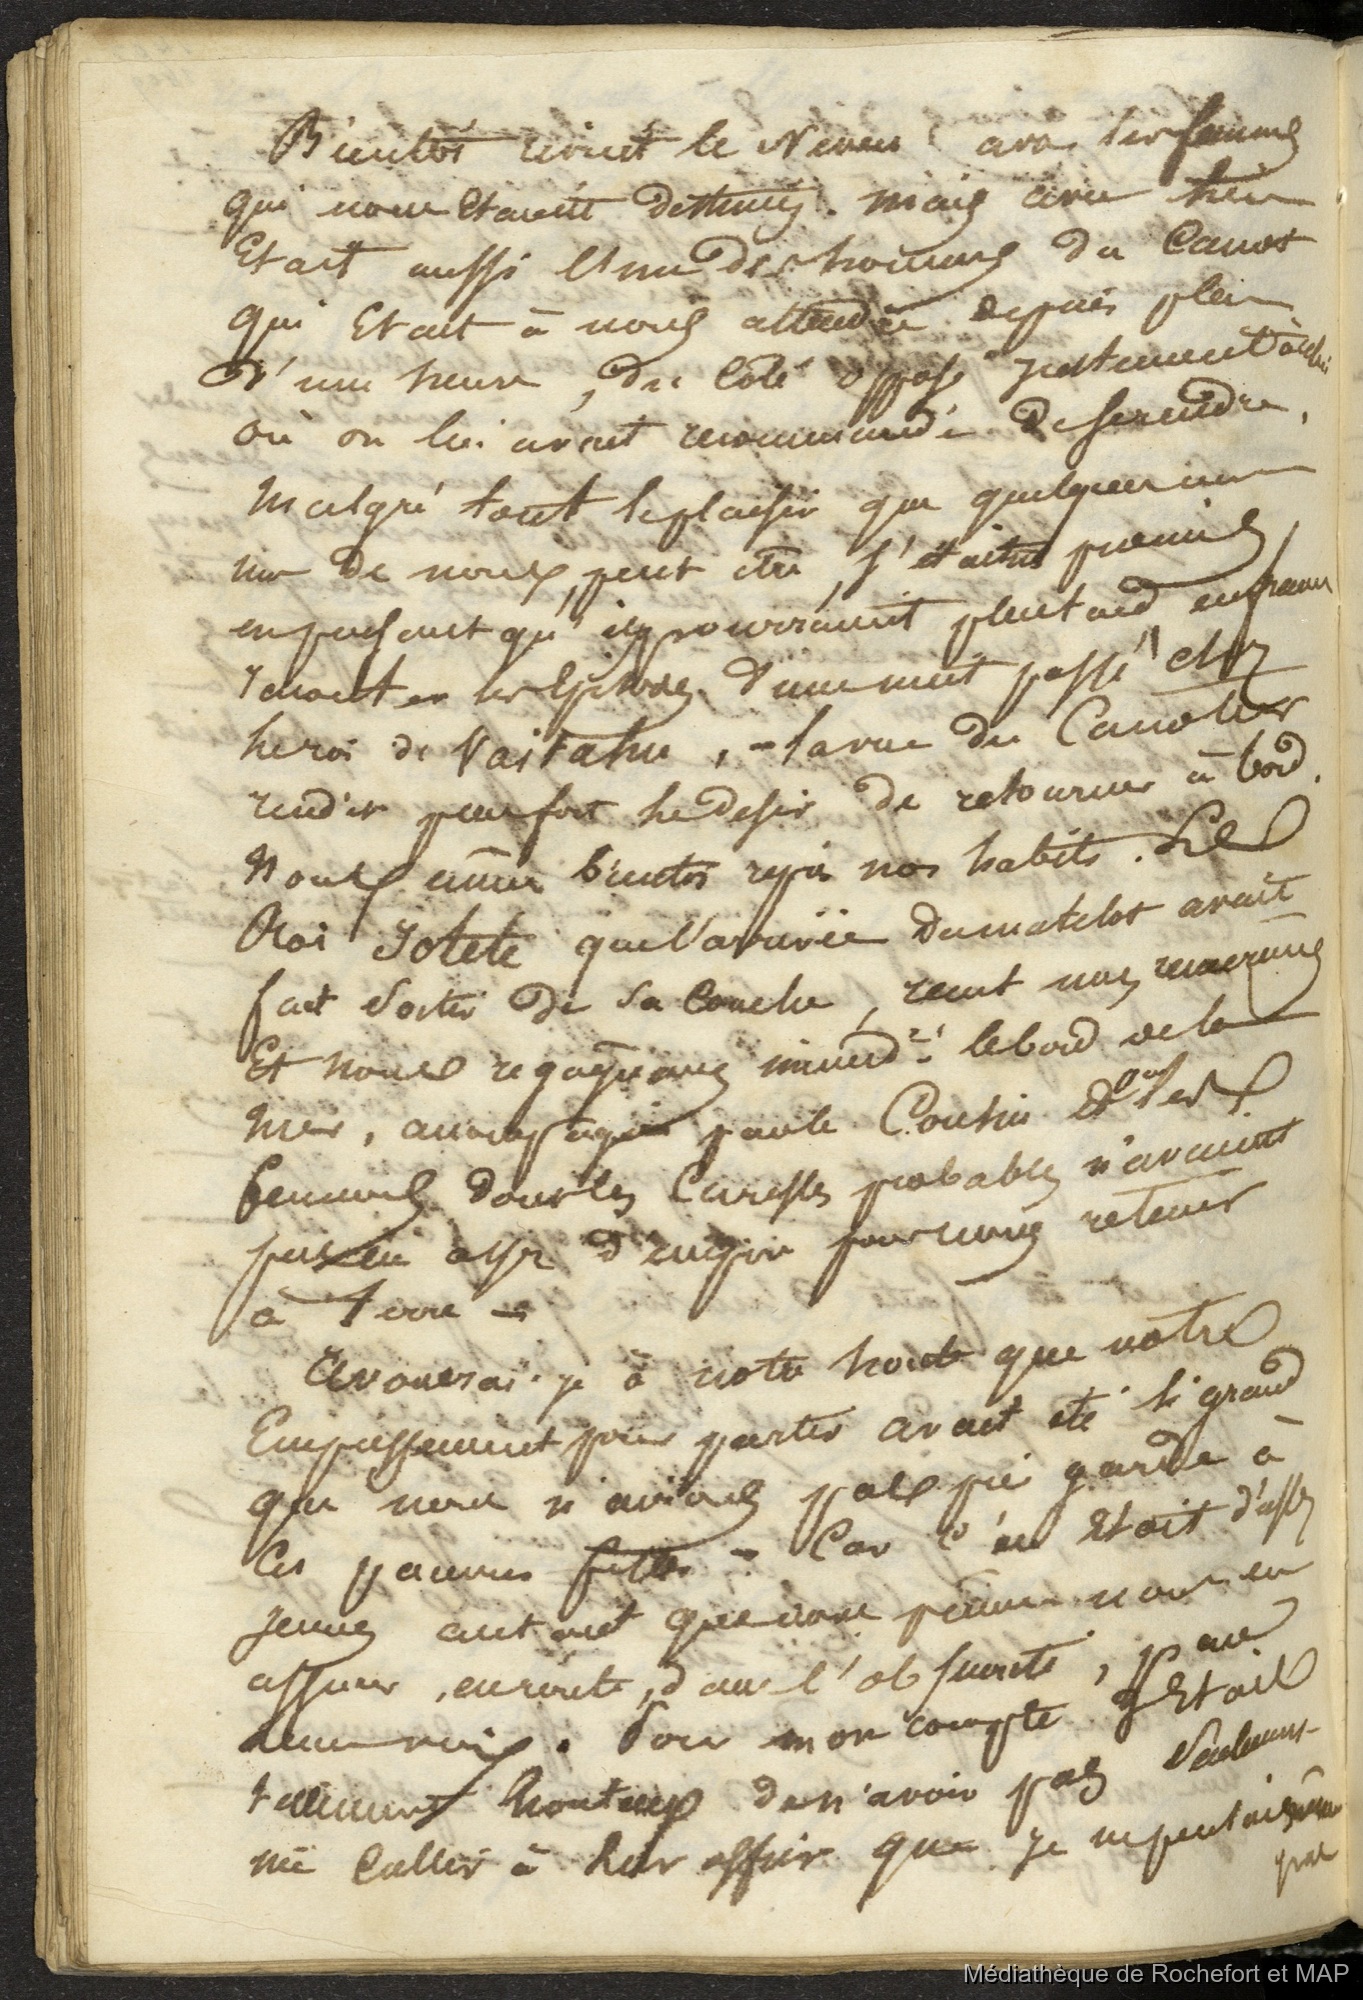 Bientôt revint le Neveu avec les femmes
qui nous etaient destinés. mais avec lui
Etait aussi l'un des hommes du Canot
qui Etait à nous attendre depuis plus
d'une heure, du Coté opposé justement à celui
où on lui avait recommandé de se rendre.
Malgré tout le plaisir que quelques un
de nous, peut etre, s'étaient promis,
en pensant qu'ils pourraient plus tard en france
raconter les Episodes d'une nuit passé chez
le roi de Vaitahu, - la vue du Canotier
rendit plus fort le desir de retourner à bord.
Nous eûmes bientot repris nos habits. Le
Roi Iotete que l'arrivée du matelot avait
fait sortir de sa Couche, recut nos remerciements
Et nous regagnames immed.t le bord de la
mer, accompagnés par le Cousin Et les
femmes dont les Caresses probables n'avaient
pas eu assez d'empire pour nous retenir
à Terre -
Avouerai-je à notre honte que notre
Empressement pour partir avait eté si grand
que nous n'avions pas pris garde à
Ces pauvres filles - Car C'en Etait d'assez
jeunes autant que nous pûmes nous en
assurer, en route, dans l'obscurité, par
leur voix. Pour mon compte J'Etais
tellement honteux de n'avoir pas seulement
à leur offrir que je ne pensais même
pas
Médiathèque de Rochefort et MAP